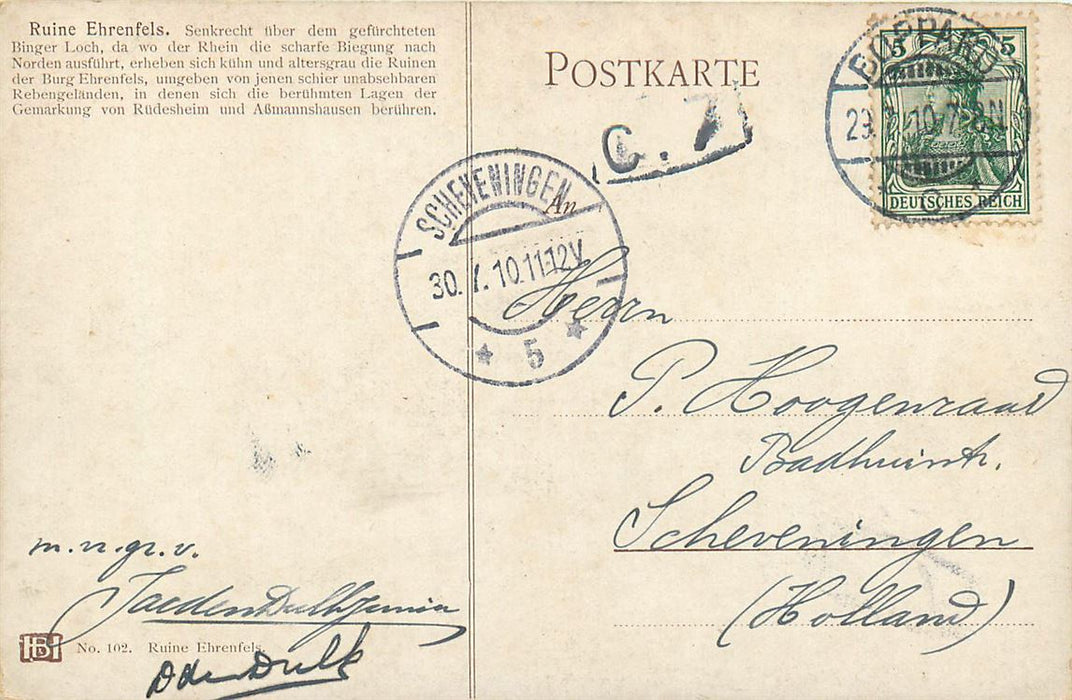 Ruine Ehrenfels. Senkrecht über dem gefürchteten
Binger Loch, da wo der Rhein die scharfe Biegung nach
Norden ausführt, erheben sich kühn und altersgrau die Ruinen
der Burg Ehrenfels, umgeben von jenen schier unabsehbaren
Rebengeländen, in denen sich die berühmten Lagen der
Gemarkung von Rüdesheim und Aßmannshausen berühren.
POSTKARTE
5 5
DEUTSCHES REICH
BOPPARD
29. 10. 7-8N
C. 7
SCHEVENINGEN
30. 10. 11-12V
* 5 *
An
Herrn
P. Hoogenraad
Badhuisstr.
Scheveningen
(Holland)
m. vr. gr. v.
Jac den Dulk Junior
D den Dulk
HB No. 102. Ruine Ehrenfels.